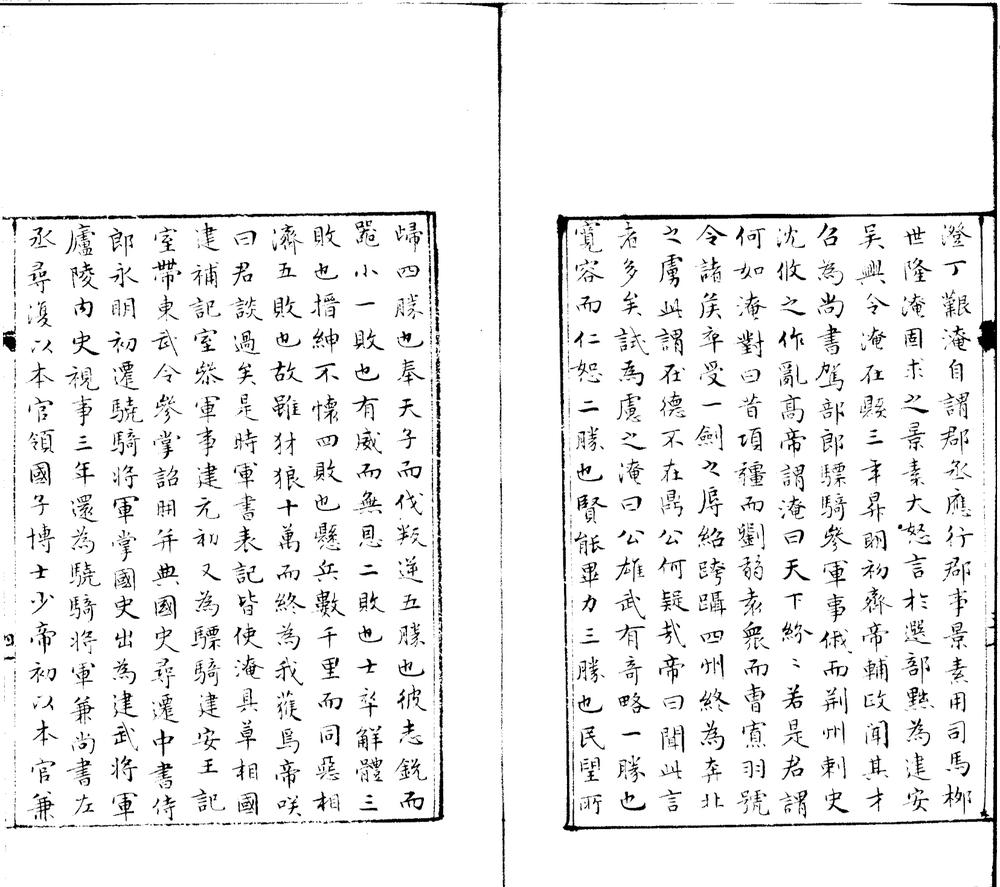 澄丁艱淹自謂郡丞應行郡事景素用司馬栁
世隆淹固求之景素大怒言於選部黜為建安
吴興令淹在縣三年昇明初齊帝輔政聞其才
召為尚書駕部郎驃騎參軍事俄而荆州刺史
沈攸之作亂髙帝謂淹曰天下紛〻若是君謂
何如淹對曰昔項彊而劉弱袁衆而曹寡羽號
令諸侯卒受一劍之辱紹跨躡四州終為奔北
之虜此謂在德不在鼎公何疑哉帝曰聞此言
者多矣試為慮之淹曰公雄武有奇略一勝也
寛容而仁恕二勝也賢能畢力三勝也民望所
歸四勝也奉天子而伐叛逆五勝也彼志銳而
噐小一敗也有威而無恩二敗也士卒解體三
敗也搢紳不懷四敗也懸兵數千里而同惡相
濟五敗也故雖豺狼十萬而終為我獲焉帝咲
曰君談過矣是時軍書表記皆使淹具草相國
建補記室叅軍事建元初又為驃騎建安王記
室帶東武令參掌詔册并典國史尋遷中書侍
郎永明初遷驍騎將軍掌國史出為建武將軍
廬陵内史視事三年還為驍騎將軍兼尚書左
丞尋復以本官領國子博士少帝初以本官兼